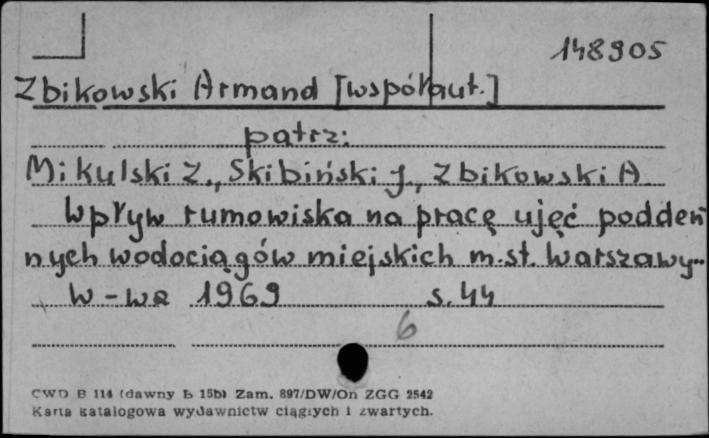 148905
Zbikowski Armand [współaut.]
patrz:
Mikulski Z., Skibiński J., Zbikowski A
Wpływ rumowiska na pracę ujęć podden
nych wodociągów miejskich m.st. Warszawy..
W-wa 1969 s. 44
6
CWD B 114 (dawny b 15b) Zam. 897/DW/On ZGG 2542
Karta katalogowa wydawnictw ciągłych i zwartych.